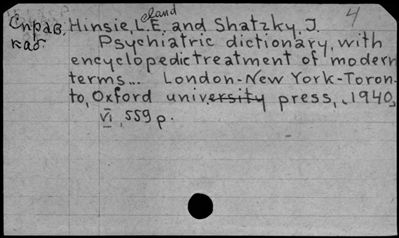 4
eland
Справ. Hinsie, L.E. and Shatzky, J.
каб. Psychiatric dictionary, with
encyclopedic treatment of modern
terms... London-New York-Toron-
to, Oxford university press, 1940,
VI, 559 p.